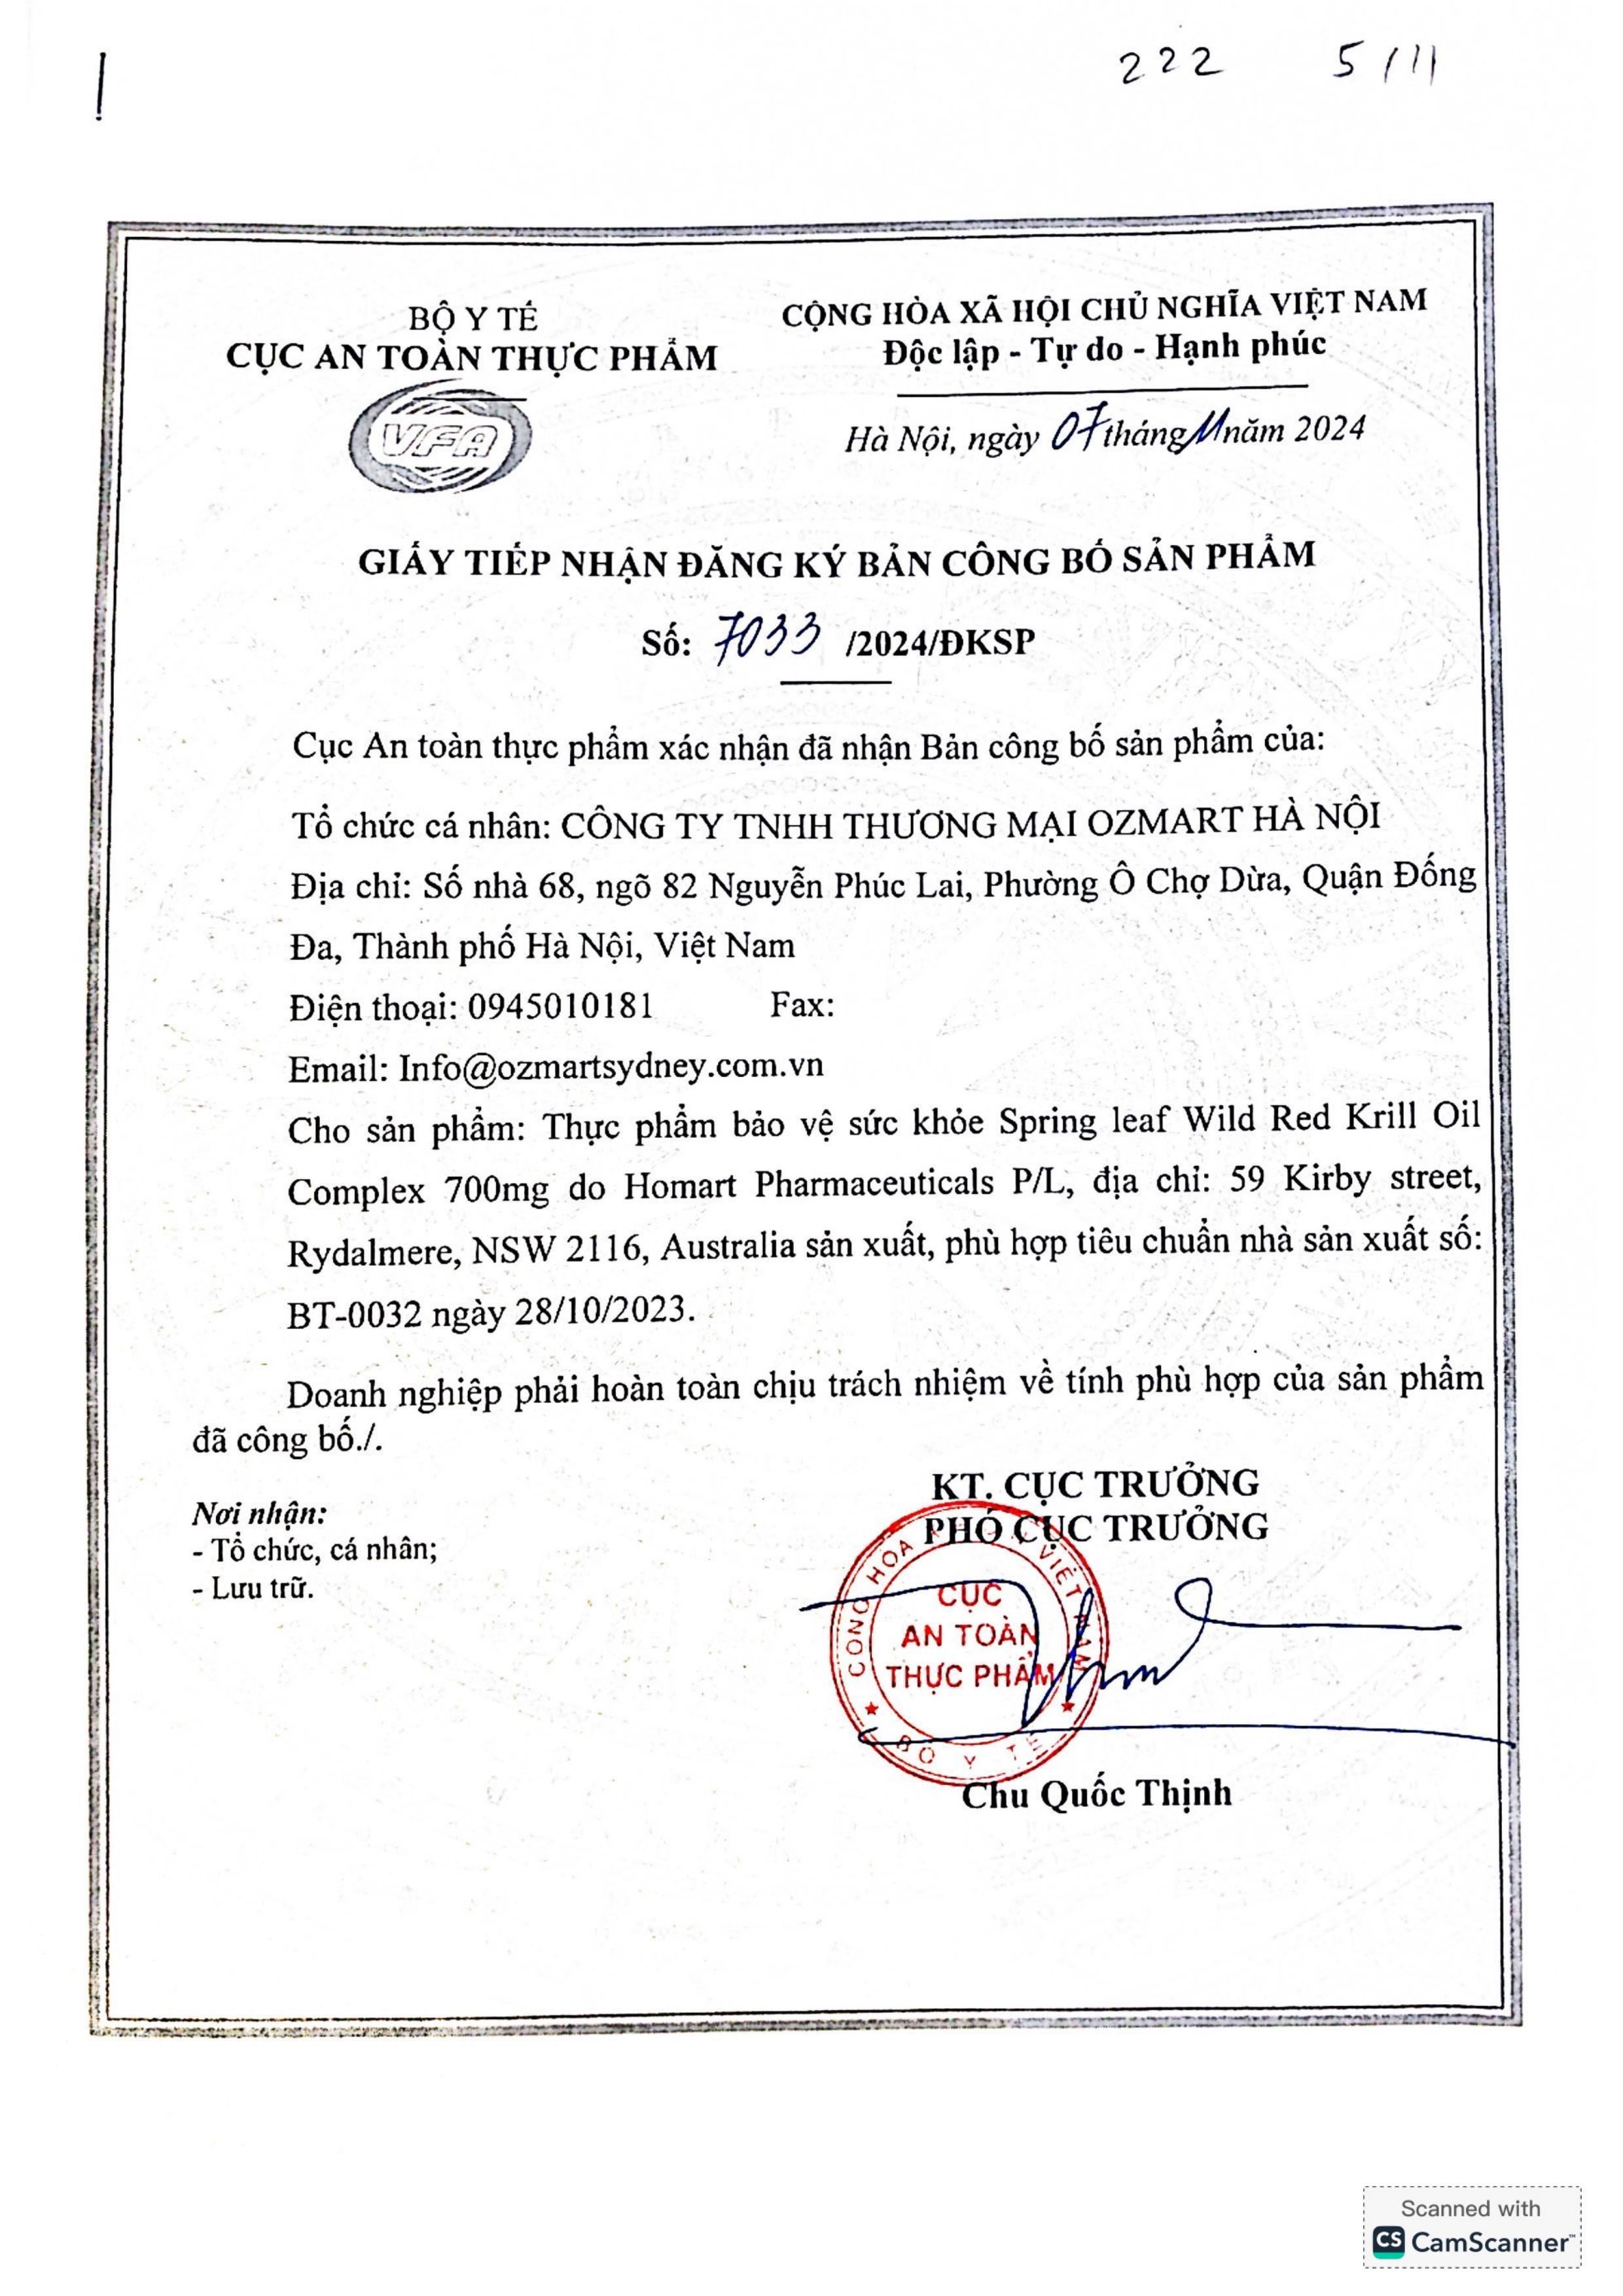 222 5/11
BỘ Y TẾ
CỤC AN TOÀN THỰC PHẨM
VFA
CỘNG HÒA XÃ HỘI CHỦ NGHĨA VIỆT NAM
Độc lập - Tự do - Hạnh phúc
Hà Nội, ngày 07 tháng 11 năm 2024
GIẤY TIẾP NHẬN ĐĂNG KÝ BẢN CÔNG BỐ SẢN PHẨM
Số: 7033 /2024/ĐKSP
Cục An toàn thực phẩm xác nhận đã nhận Bản công bố sản phẩm của:
Tổ chức cá nhân: CÔNG TY TNHH THƯƠNG MẠI OZMART HÀ NỘI
Địa chỉ: Số nhà 68, ngõ 82 Nguyễn Phúc Lai, Phường Ô Chợ Dừa, Quận Đống
Đa, Thành phố Hà Nội, Việt Nam
Điện thoại: 0945010181 Fax:
Email: Info@ozmartsydney.com.vn
Cho sản phẩm: Thực phẩm bảo vệ sức khỏe Spring leaf Wild Red Krill Oil
Complex 700mg do Homart Pharmaceuticals P/L, địa chỉ: 59 Kirby street,
Rydalmere, NSW 2116, Australia sản xuất, phù hợp tiêu chuẩn nhà sản xuất số:
BT-0032 ngày 28/10/2023.
Doanh nghiệp phải hoàn toàn chịu trách nhiệm về tính phù hợp của sản phẩm
đã công bố./.
Nơi nhận:
- Tổ chức, cá nhân;
- Lưu trữ.
KT. CỤC TRƯỞNG
PHÓ CỤC TRƯỞNG
CỤC
AN TOÀN
THỰC PHẨM
BỘ Y TẾ
Chu Quốc Thịnh
Scanned with
CS CamScanner